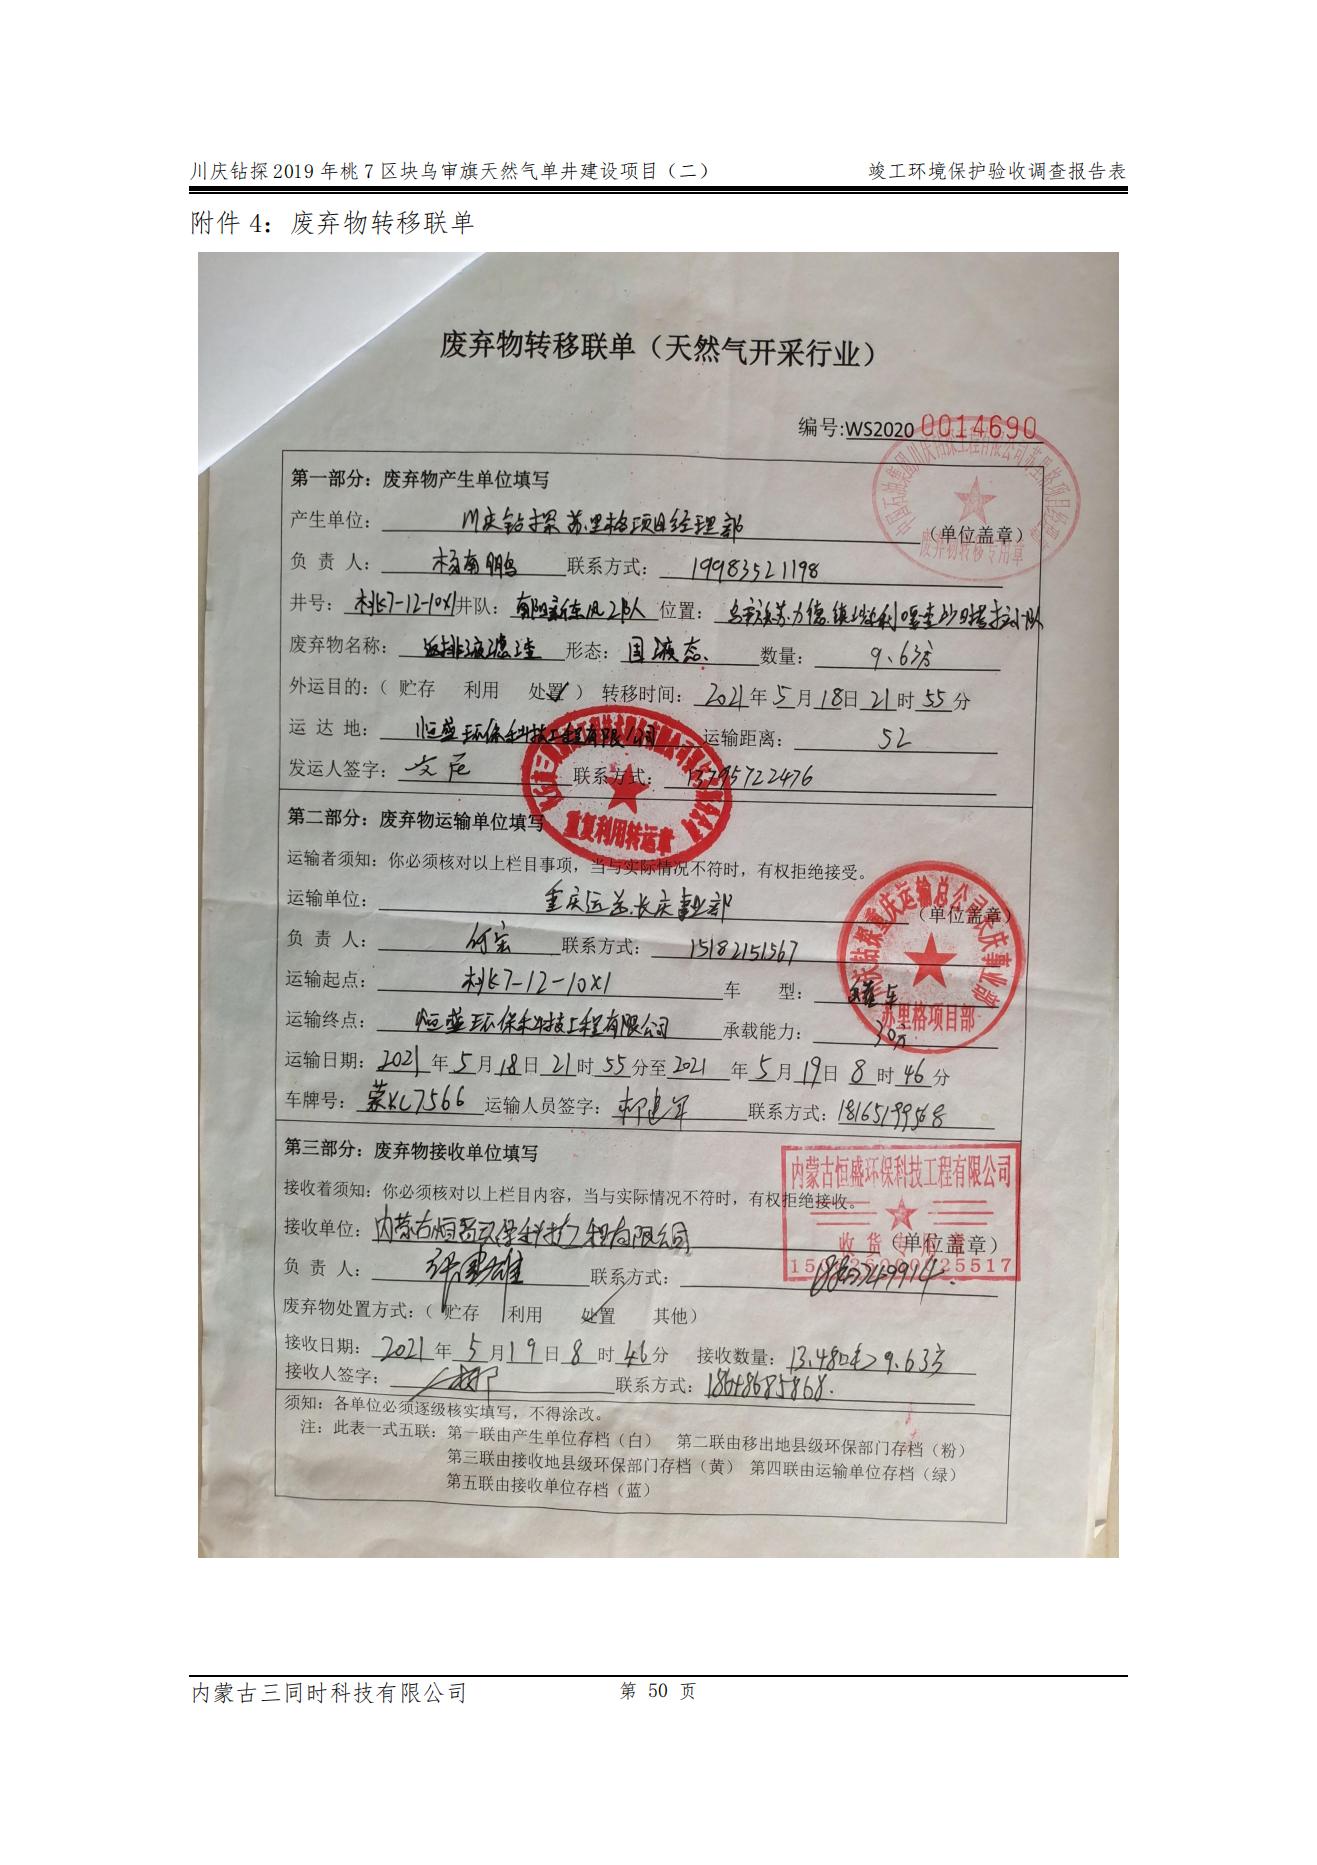 川庆钻探2019年桃7区块乌审旗天然气单井建设项目（二） 竣工环境保护验收调查报告表
附件 4：废弃物转移联单
废弃物转移联单（天然气开采行业）
编号:WS2020 0014690
第一部分：废弃物产生单位填写
产生单位： 川庆钻探苏里格项目经理部 （单位盖章）
废弃物转移专用章
负 责 人： 杨南鹏 联系方式： 19983521198
井号： 桃7-12-10X1 井队： 位置：
废弃物名称： 返排液滤渣 形态： 固液态 数量： 9.63方
外运目的：（ 贮存 利用 处置✓ ） 转移时间： 2021年5月18日21时55分
运 达 地： 恒盛环保科技工程有限公司 运输距离： 52
发运人签字： 联系方式： 13795722476
重复利用转运章
第二部分：废弃物运输单位填写
运输者须知：你必须核对以上栏目事项，当与实际情况不符时，有权拒绝接受。
运输单位： 重庆运总长庆事业部 （单位盖章）
川庆钻探重庆运输总公司长庆事业部
苏里格项目部
负 责 人： 何宏 联系方式： 15182151567
运输起点： 桃7-12-10X1 车 型： 罐车
运输终点： 恒盛环保科技工程有限公司 承载能力： 30方
运输日期： 2021年5月18日21时55分至2021年5月19日8时46分
车牌号： 蒙KC7566 运输人员签字： 联系方式： 18165199568
第三部分：废弃物接收单位填写
内蒙古恒盛环保科技工程有限公司
收货专用章
接收着须知：你必须核对以上栏目内容，当与实际情况不符时，有权拒绝接收。
接收单位： 内蒙古恒盛环保科技工程有限公司 （单位盖章）
负 责 人： 联系方式：
废弃物处置方式：（ 贮存 利用 处置✓ 其他）
接收日期： 2021年5月19日8时46分 接收数量： 13.48吨 9.63方
接收人签字： 联系方式： 18648685868.
须知：各单位必须逐级核实填写，不得涂改。
注：此表一式五联：第一联由产生单位存档（白） 第二联由移出地县级环保部门存档（粉）
第三联由接收地县级环保部门存档（黄） 第四联由运输单位存档（绿）
第五联由接收单位存档（蓝）
内蒙古三同时科技有限公司 第 50 页